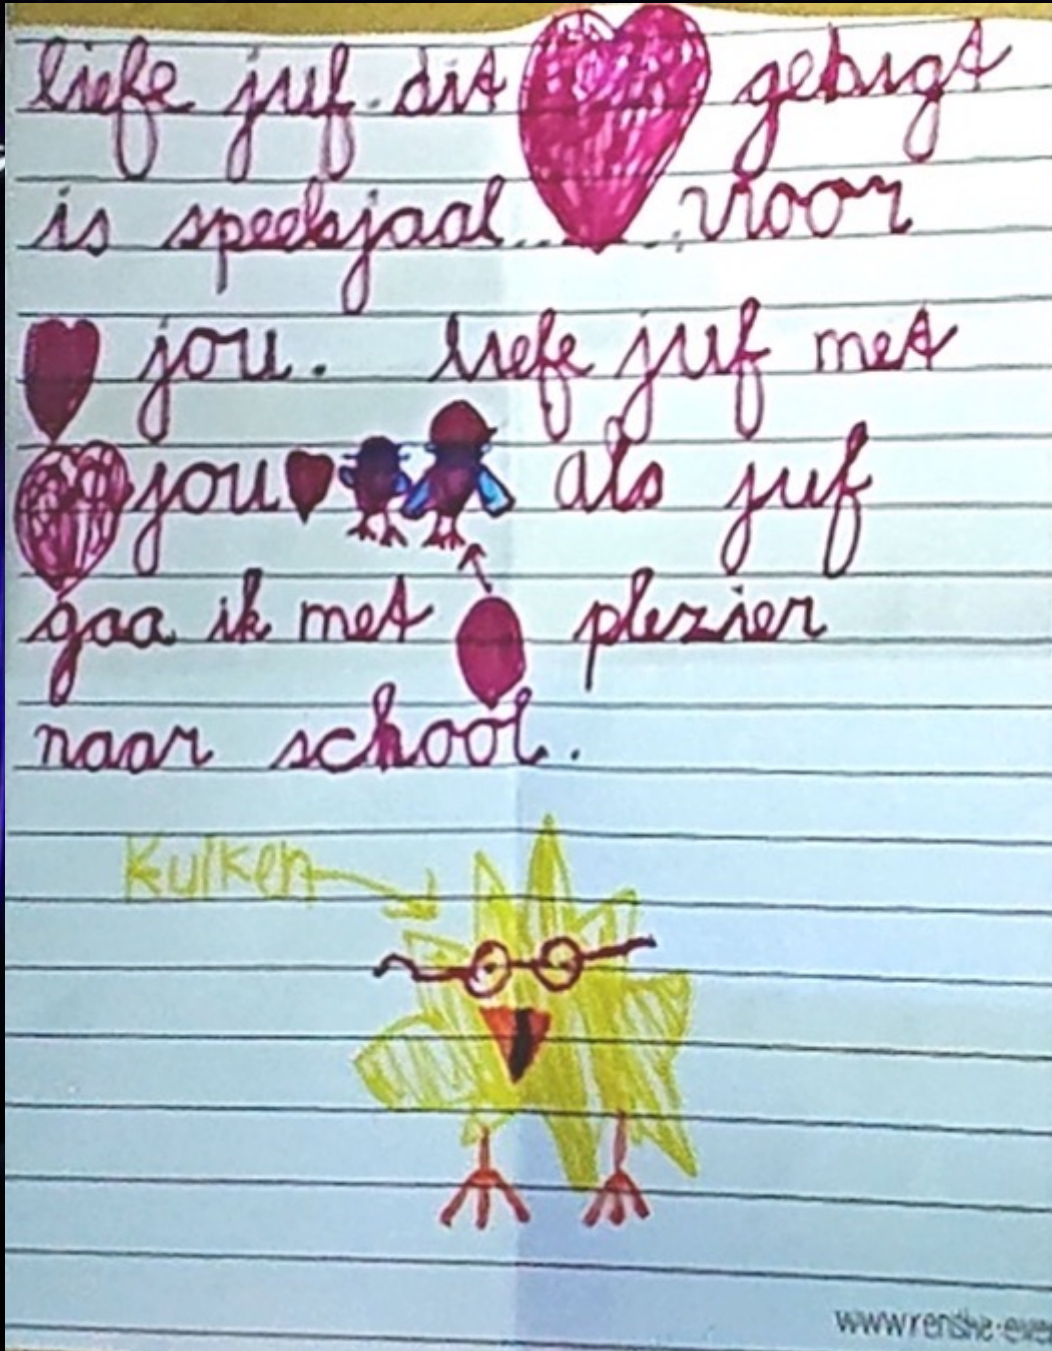 liefe juf dit gedigt
is speesjaal........voor
jou. liefe juf met
jou als juf
gaa ik met plezier
naar school.
kuiken